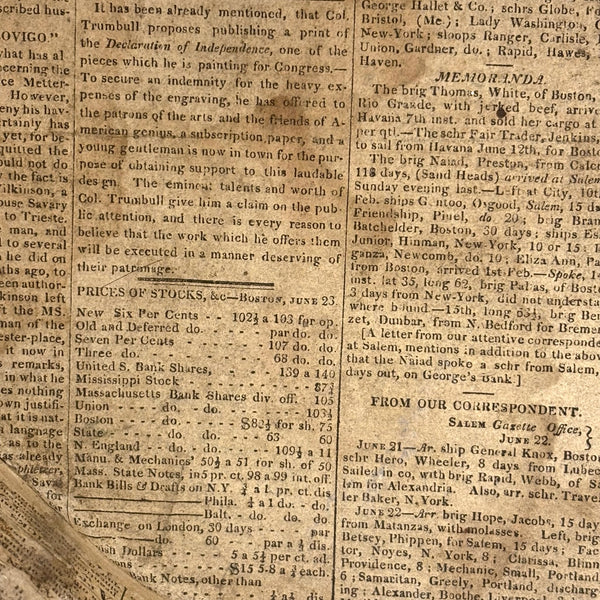 OVIGO"
what has al
cerning the
ce Metter-
However,
eny his hav-
ertainty has
yet, for be-
quitted the
ould not do
y the fact is
ilkinson, a
ouse Savary
to Trieste.
man, and
d to several
he did on
ths ago, to
een author-
kinson left
ft the MS.
man of the
ester-place,
it now in
s remarks,
s nothing
own justifi-
at it is nat-
language
as to the
as already
phletzer,
Sava
for
It has been already mentioned, that Col.
Trumbull proposes publishing a print of
the Declaration of Independence, one of the
pieces which he is painting for Congress.—
To secure an indemnity for the heavy ex-
penses of the engraving, he has offered to
the patrons of the arts and the friends of A-
merican genius, a subscription paper, and a
young gentleman is now in town for the pur-
pose of obtaining support to this laudable
design. The eminent talents and worth of
Col. Trumbull give him a claim on the pub-
lic attention, and there is every reason to
believe that the work which he offers them
will be executed in a manner deserving of
their patronage.
PRICES OF STOCKS, &c—BOSTON, JUNE 23.
New Six Per Cents 102½ a 103 for op.
Old and Deferred do. par do. do.
Seven Per Cents 107 do. do.
Three do. 68 do. do.
United S. Bank Shares, 139 a 140
Mississippi Stock 87½
Massachusetts Bank Shares div. off. 105
Union do. do. 103½
Boston do. do. $82½ for sh. 75
State do. 63 60
N. England do. do. 109½ a 11
Manu. & Mechanics' 50½ a 51 for sh. of 50
Mass. State Notes, in 5 pr. ct. 98 a 99 int. off.
Bank Bills & Drafts on N.Y. ¾ a 1 pr. ct. dis
Phila. ¾ a 1 do. do.
Balt. do. do.
Exchange on London, 30 days par
do. 60 par a ½ dis.
Dollars 5 a 5½ per ct. ad.
$15 5-8 a ¾ each.
Bank Notes, other than
a ½ dis.
George Hallet & Co; schrs Globe, Fo
Bristol, (Me.); Lady Washington, C
New-York; sloops Ranger, Carlisle, I
Union, Gardner, do.; Rapid, Hawes,
Haven.
MEMORANDA.
The brig Thomas, White, of Boston,
Rio Grande, with jerked beef, arriv
Havana 7th inst. and sold her cargo at
per qtl.—The schr Fair Trader, Jenkins,
to sail from Havana June 12th, for Bosto
The brig Naiad, Preston, from Calc
118 days, (Sand Heads) arrived at Salem
Sunday evening last.—Left at City, 10t
Feb. ships Gentoo, Osgood, Salem, 15 da
Friendship, Pinel, do 20; brig Bran
Batchelder, Boston, 30 days; ships Es
Junior, Hinman, New-York, 10 or 15: I
ganza, Newcomb, do. 10: Eliza Ann, Pa
from Boston, arrived 1st Feb.—Spoke, 14
inst. lat 35, long 62, brig Pallas, of Bost
3 days from New-York, did not understa
where bound.—15th, long 63½, brig Ben
zet, Dunbar, from N. Bedford for Bremen
[A letter from our attentive correspondent
at Salem, mentions in addition to the above
that the Naiad spoke a schr from Salem,
days out, on George's Bank]
FROM OUR CORRESPONDENT.
SALEM Gazette Office,
JUNE 22.
JUNE 21—Ar. ship General Knox, Boston
schr Hero, Wheeler, 8 days from Lubec
Sailed in co, with brig Rapid, Webb, of Sa
lem for Alexandria. Also, arr. schr. Travel
ler Baker, N. York.
JUNE 22—Arr. brig Hope, Jacobs, 15 days
from Matanzas, with molasses. Left, brig
Betsey, Phippen, for Salem, 15 days; Fac
tor, Noyes, N. York, 8; Clarissa, Brown
Providence, 8; Mechanic, Small, Portland
6; Samaritan, Greely, Portland, discharg
ing; Alexander, Boothe, Liverpool